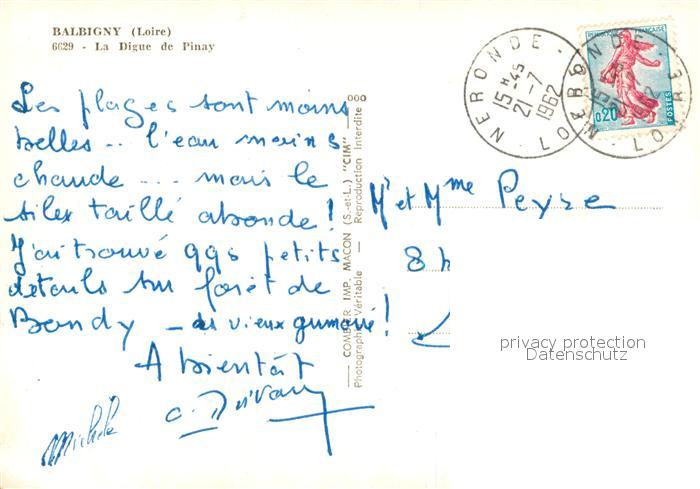 BALBIGNY (Loire)
6629 - La Digue de Pinay
Les plages sont moins
belles .. l'eau moins
chaude ... mais le
silex taillé abonde !
J'ai trouvé qqs petits
détails sur forêt de
Bondy - des vieux
A bientôt
Michèle
COMBIER IMP. MACON (S.-et-L.) "CIM"
Photographie Véritable - Reproduction Interdite
NERONDE - LOIRE
15 H 45
21-7
1962
REPUBLIQUE FRANÇAISE
0,20
POSTES
Mr et Mme Peyre
8
privacy protection
Datenschutz